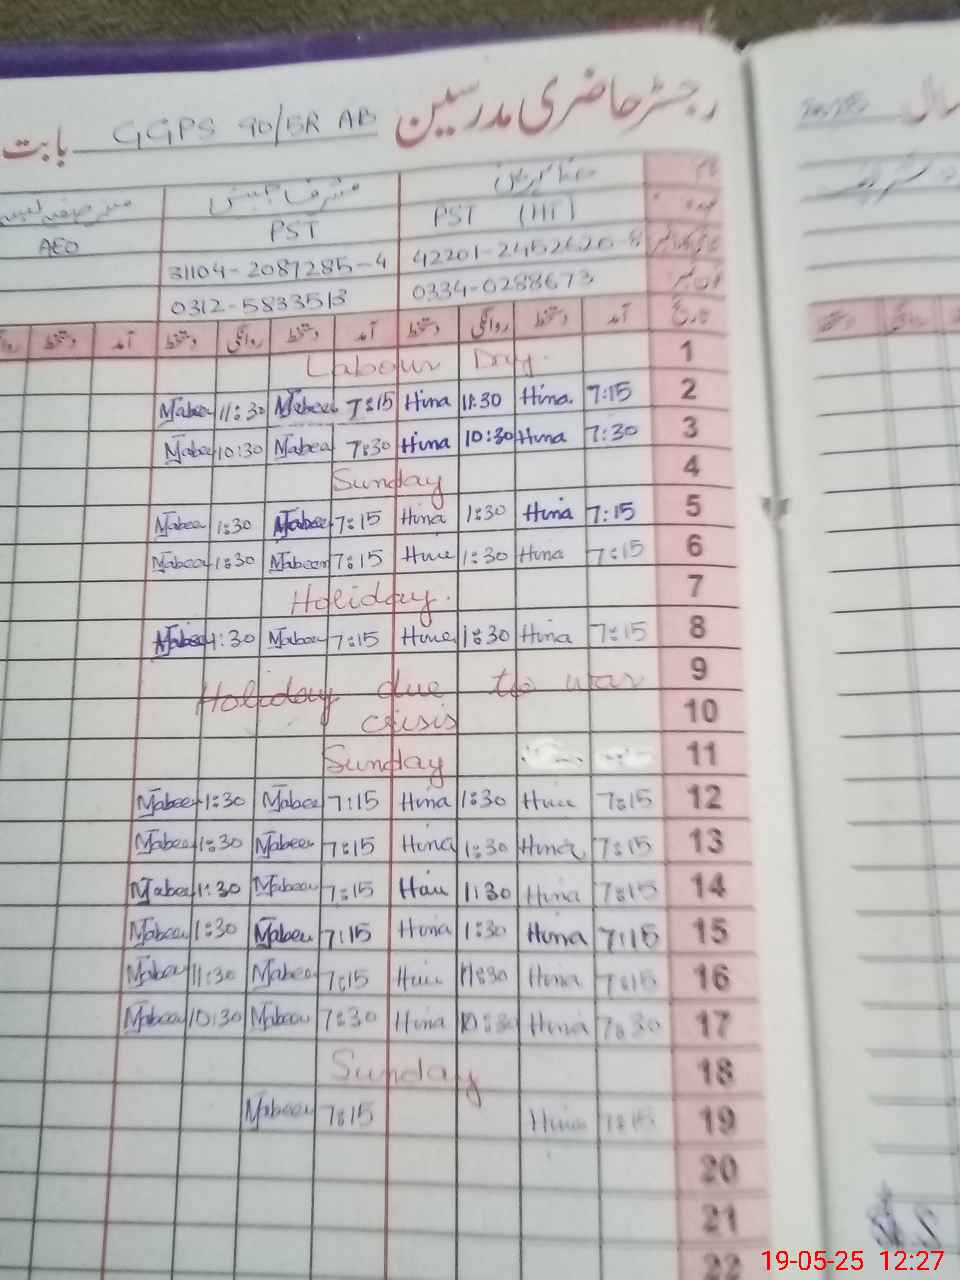 رجسٹر حاضری مدرسین GGPS 90/5R AB بابت
سال
نام
عہدہ
PST (HT) PST AEO
42201-2452620-8 31104-2087285-4
0334-0288673 0312-5833513
تاریخ آمد دستخط روانگی دستخط آمد دستخط روانگی دستخط آمد دستخط
1 Labour Day.
2 7:15 Hina 11:30 Hina 7:15 Mabeen 11:30 Mabee
3 7:30 Hina 10:30 Hina 7:30 Mabeen 10:30 Mabee
4 Sunday
5 7:15 Hina 1:30 Hina 7:15 Mabeen 1:30 Mabeen
6 7:15 Hina 1:30 Hina 7:15 Mabeen 1:30 Mabeen
7 Holiday.
8 7:15 Hina 1:30 Hina 7:15 Mabeen 1:30 Mabeen
9 Holiday due to war
10 crisis
11 Sunday
12 7:15 Hina 1:30 Hina 7:15 Mabee 1:30 Mabeen
13 7:15 Hina 1:30 Hina 7:15 Mabeen 1:30 Mabeen
14 7:15 Hina 1:30 Hina 7:15 Mabeen 1:30 Mabee
15 7:15 Hina 1:30 Hina 7:15 Mabeen 1:30 Mabeen
16 7:15 Hina 11:30 Hina 7:15 Mabeen 11:30 Mabeen
17 7:30 Hina 10:30 Hina 7:30 Mabeen 10:30 Mabeen
18 Sunday
19 7:15 Hina 7:15 Mabeen
20
21
22
19-05-25 12:27